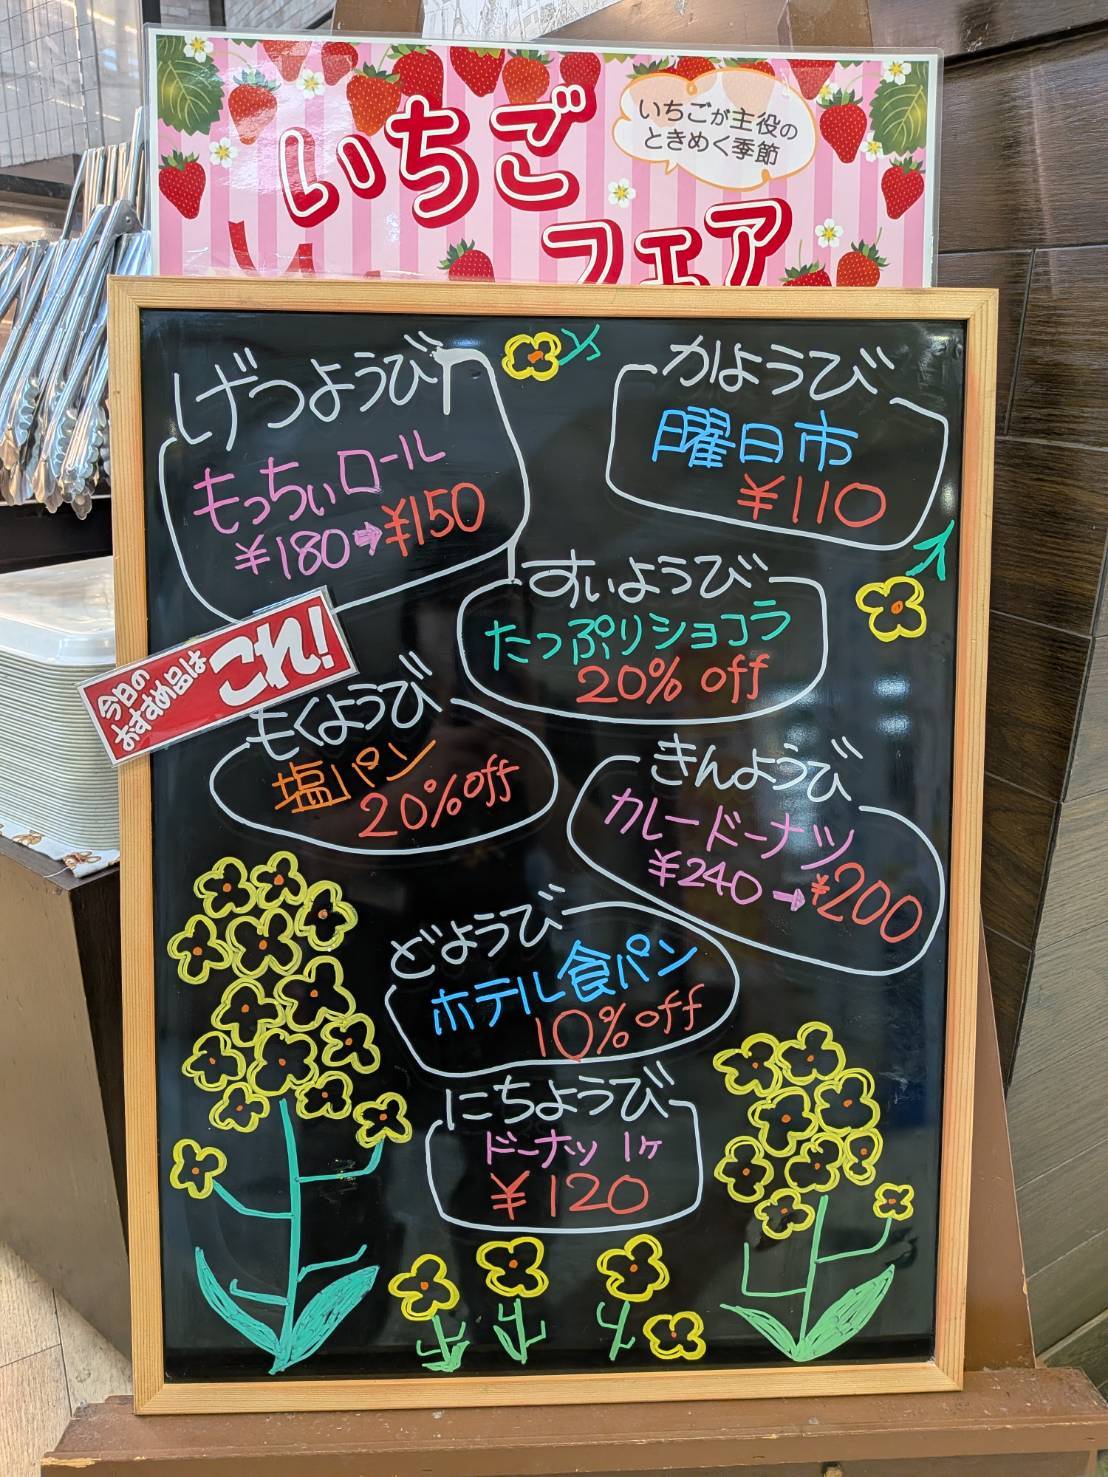 いちご
フェア
いちごが主役の
ときめく季節
げつようび
もっちぃロール
¥180→¥150
かようび
曜日市
¥110
すいようび
たっぷりショコラ
20% off
今日の
おすすめ品は
これ!
もくようび
塩パン
20%off
きんようび
カレードーナツ
¥240→¥200
どようび
ホテル食パン
10%off
にちようび
ドーナツ 1ヶ
¥120